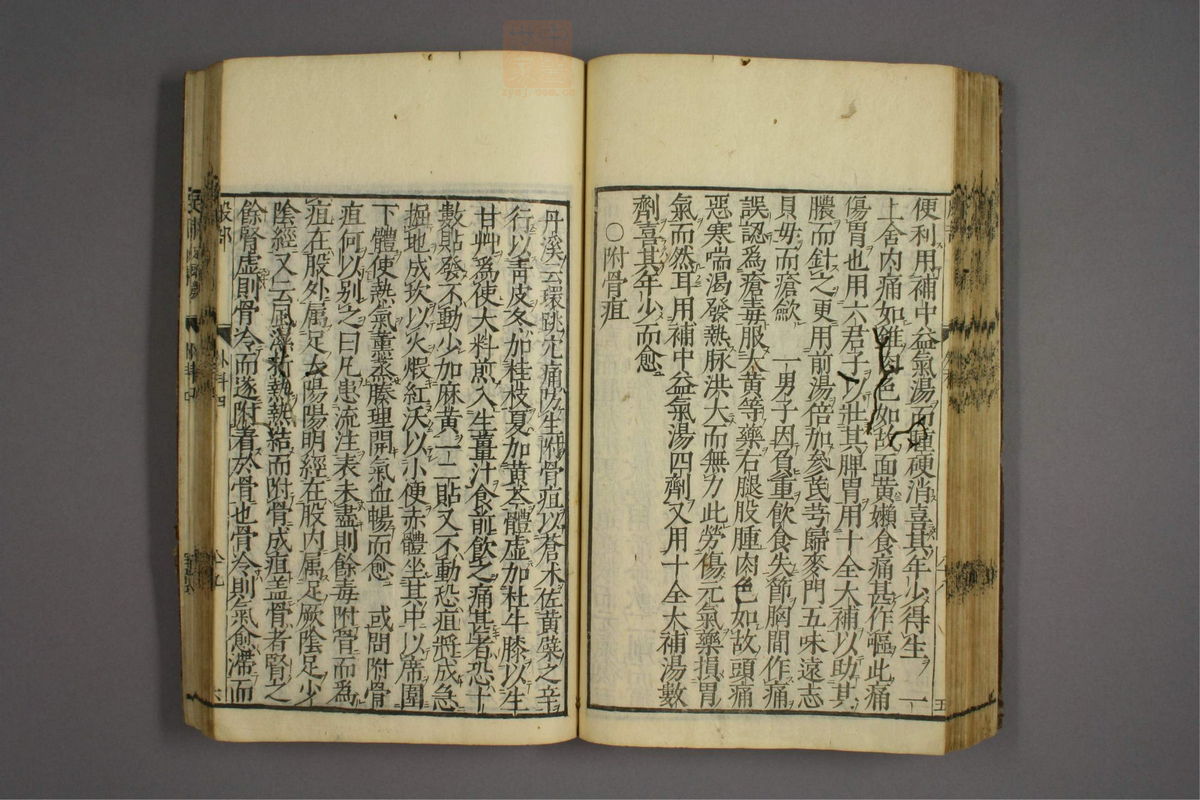 便利用補中益氣湯而腫硬消喜其年少得生 一
上舍内痛如錐肉色如故面黄嬾食痛甚作嘔此痛
傷胃也用六君子以壯其脾胃用十全大補以助其
膿而針之更用前湯倍加參芪芎歸麥門五味遠志
貝毋而瘡歛 一男子因負重飲食失節胸間作痛
誤認爲瘡毒服大黄等藥右腿股腫肉色如故頭痛
惡寒喘渴發熱脉洪大而無力此勞傷元氣藥損胃
氣而然耳用補中益氣湯四劑又用十全大補湯數
劑喜其年少而愈
○附骨疽
丹溪云環跳穴痛防生附骨疽以蒼术佐黄蘗之辛
行以青皮冬加桂枝夏加黄芩體虚加杜牛膝以生
甘艸爲使大料煎入生薑汁食前飲之痛甚者恐十
數貼發不動少加麻黄一二貼又不動恐疽將成急
掘地成坎以火煅紅沃以小便赤體坐其中以席圍
下體使熱氣薰蒸腠理開氣血暢而愈 或問附骨
疽何以别之曰凡患流注表未盡則餘毒附骨而爲
疽在股外属足太陽陽明經在股内属足厥陰足少
陰經又云風濕 熱熱結而附骨成疽盖骨者腎之
餘腎虚則骨冷而遂附着於骨也骨冷則氣愈滯而
股部
外科四
五
六